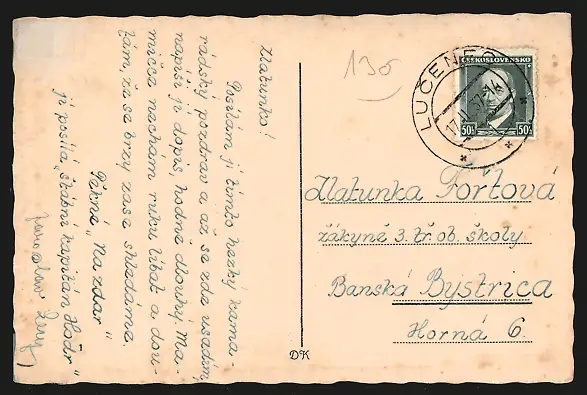 Zlatunko!
Posílám jí tímto hezký kama-
rádský pozdrav a až se zde usadím,
napíši jí dopis, hodně dlouhý. Ma-
mičce nechám ruku líbat a dou-
fám, že se brzy zase shledáme.
Pěkné „Na zdar“
jí posílá „štábní kapitán Hošr“
130
ČESKOSLOVENSKO
50h 50h
LUČENEC
Zlatunka Fořtová
žákyně 3. tř. ob. školy
Banská Bystrica
Horná 6
DK